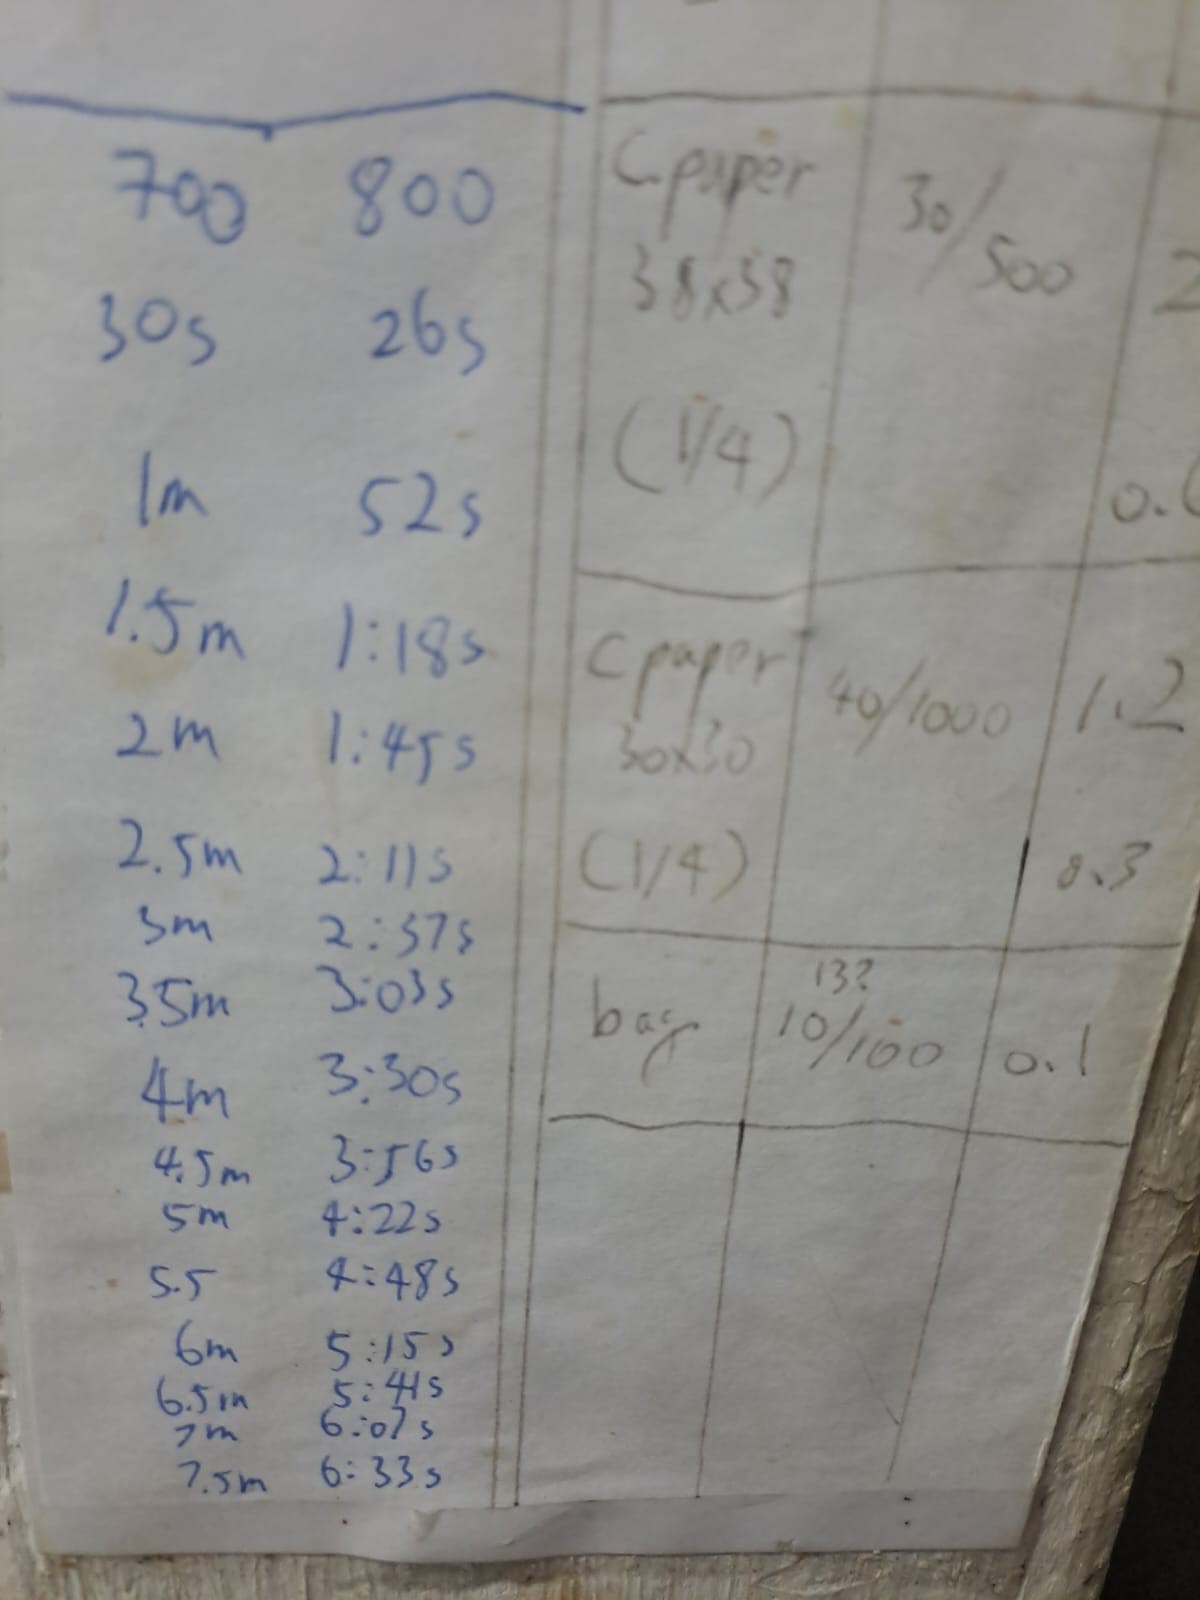 700 800
30s 26s
1m 52s
1.5m 1:18s
2m 1:45s
2.5m 2:11s
3m 2:37s
3.5m 3:03s
4m 3:30s
4.5m 3:56s
5m 4:22s
5.5 4:48s
6m 5:15s
6.5m 5:41s
7m 6:07s
7.5m 6:33s
C paper 30/500
38x38
(1/4)
C paper 40/1000 1.2
30x30
(1/4) 0.3
13?
bag 10/100 0.1